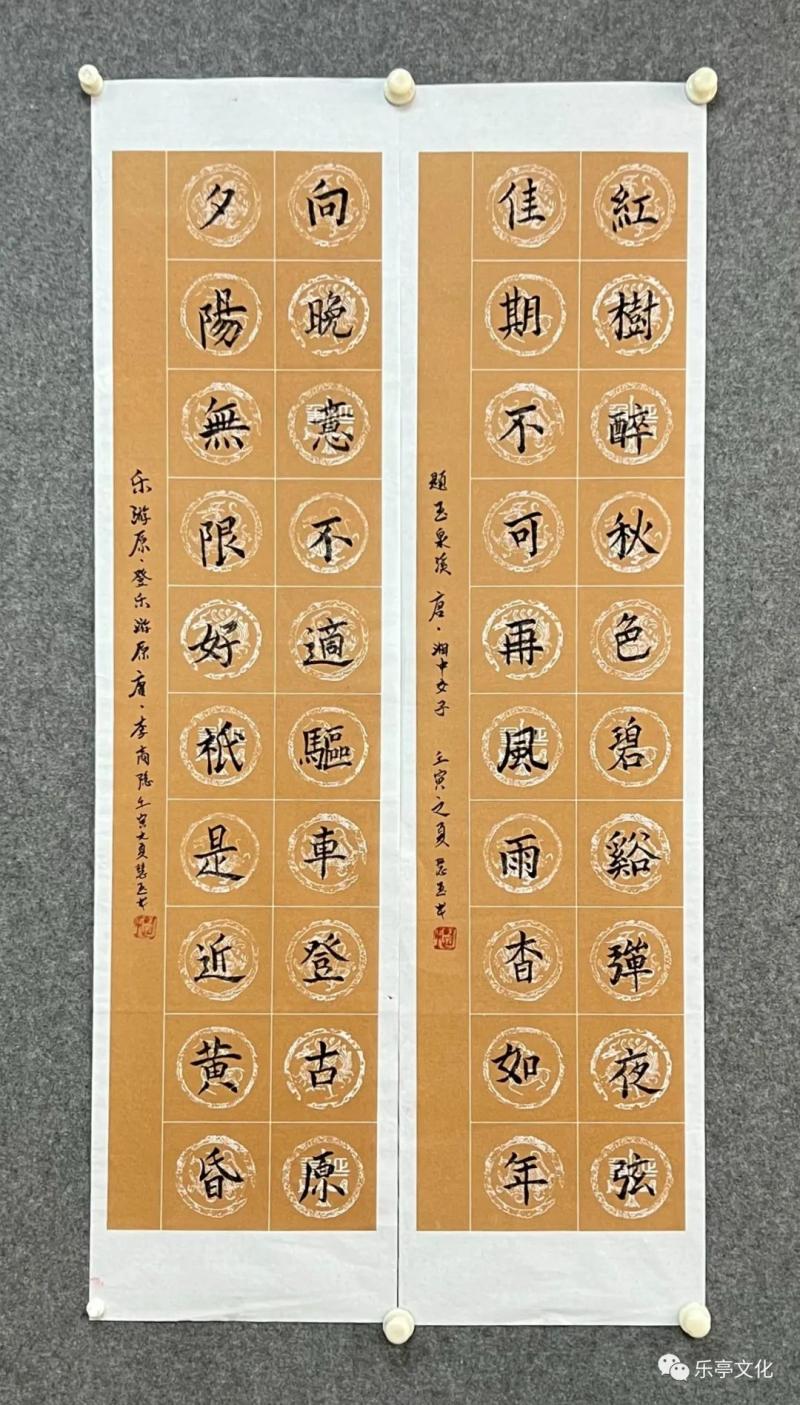 紅樹醉秋色碧谿彈夜弦
佳期不可再風雨杳如年
題玉泉溪 唐·湘中女子 壬寅之夏 慧玉书
向晚意不適驅車登古原
夕陽無限好祇是近黄昏
乐游原·登乐游原 唐·李商隐 壬寅之夏慧玉书
乐亭文化